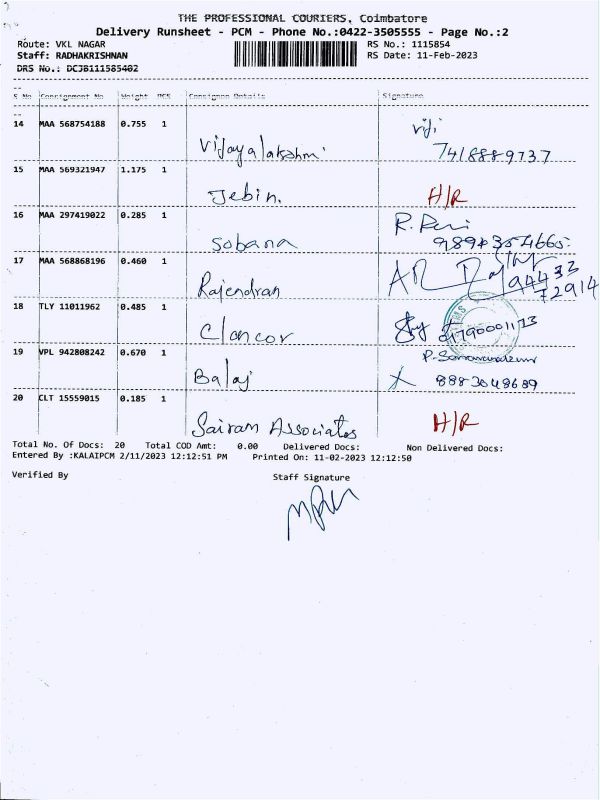 THE PROFESSIONAL COURIERS, Coimbatore
Delivery Runsheet - PCM - Phone No.:0422-3505555 - Page No.:2
Route: VKL NAGAR RS No.: 1115854
Staff: RADHAKRISHNAN RS Date: 11-Feb-2023
DRS No.: DCJB111585402
S No Consignment No Weight PCS Consignee Details Signature
14 MAA 568754188 0.755 1 Vijayalakshmi viji
7418889737
15 MAA 569321947 1.175 1 Jebin. H/R
16 MAA 297419022 0.285 1 Sobana R.
17 MAA 568868196 0.460 1 Rajendran
18 TLY 11011962 0.485 1 Clancor
19 VPL 942808242 0.670 1 Balaj
20 CLT 15559015 0.185 1 Sairam Associates H/R
Total No. Of Docs: 20 Total COD Amt: 0.00 Delivered Docs: Non Delivered Docs:
Entered By :KALAIPCM 2/11/2023 12:12:51 PM Printed On: 11-02-2023 12:12:50
Verified By Staff Signature